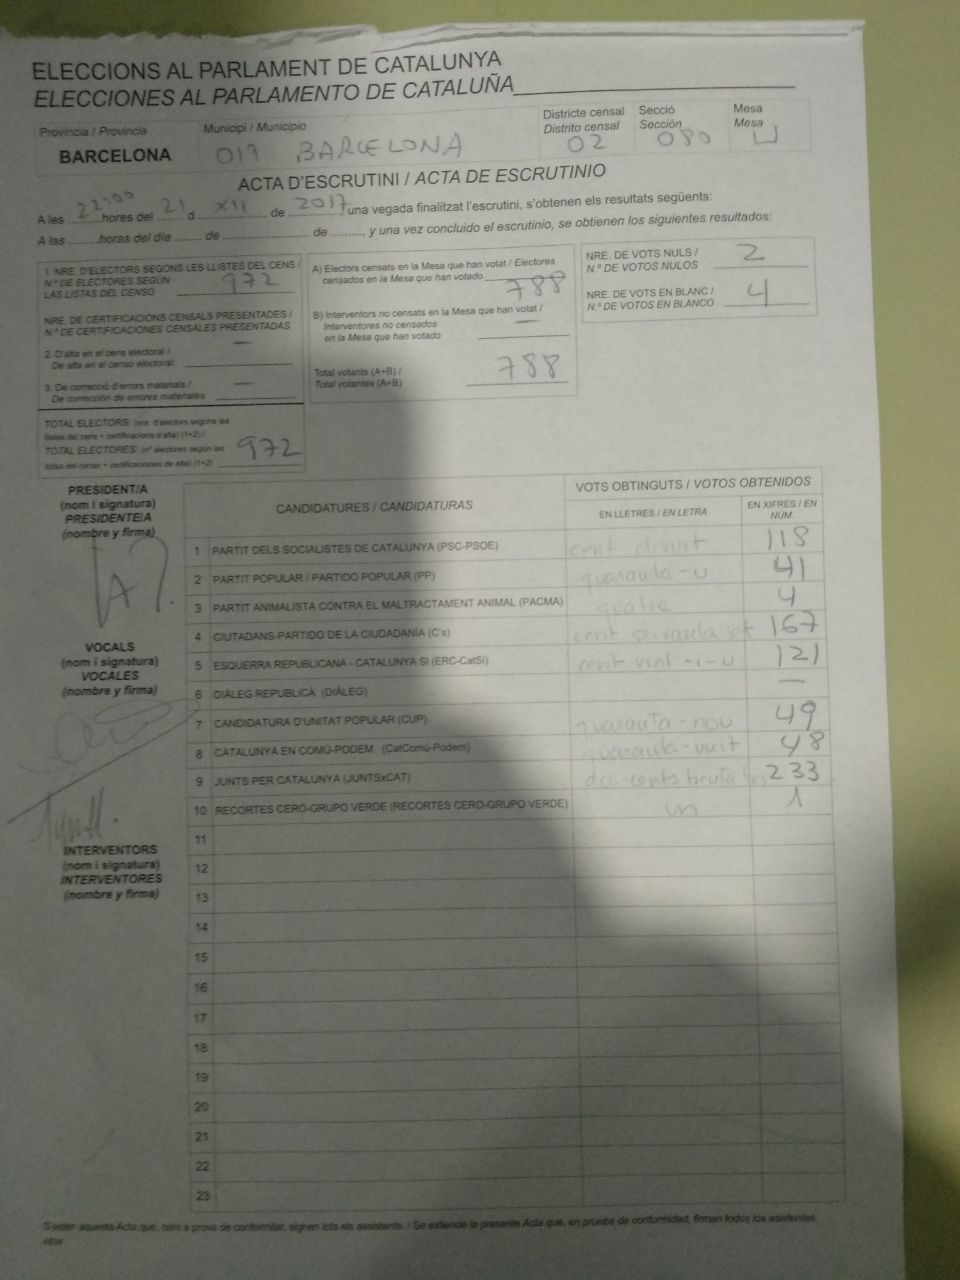 ELECCIONS AL PARLAMENT DE CATALUNYA
ELECCIONES AL PARLAMENTO DE CATALUÑA
Provincia / Provincia Municipi / Municipio Districte censal Secció Mesa
Distrito censal Sección Mesa
BARCELONA 019 BARCELONA 02 080 U
ACTA D'ESCRUTINI / ACTA DE ESCRUTINIO
A les 22:00 hores del 21 d XII de 2017 una vegada finalitzat l'escrutini, s'obtenen els resultats següents:
A las hores del día de de , y una vez concluido el escrutinio, se obtienen los siguientes resultados:
1. NRE. D'ELECTORS SEGONS LES LLISTES DEL CENS /
N.º DE ELECTORES SEGÚN
LAS LISTAS DEL CENSO 972
NRE. DE CERTIFICACIONS CENSALS PRESENTADES /
N.º DE CERTIFICACIONES CENSALES PRESENTADAS
2. D'alta en el cens electoral / —
De alta en el censo electoral:
3. De correcció d'errors materials / —
De corrección de errores materiales:
TOTAL ELECTORS: (nre. d'electors segons les
llistes del cens + certificacions d'alta) (1+2) /
TOTAL ELECTORES: (nº electores según las
listas del censo + certificaciones de alta) (1+2) 972
A) Electors censats en la Mesa que han votat / Electores
censados en la Mesa que han votado 788
B) Interventors no censats en la Mesa que han votat /
Interventores no censados —
en la Mesa que han votado
Total votants (A+B) /
Total votantes (A+B) 788
NRE. DE VOTS NULS /
N.º DE VOTOS NULOS 2
NRE. DE VOTS EN BLANC /
N.º DE VOTOS EN BLANCO 4
PRESIDENT/A
(nom i signatura)
PRESIDENTE/A
(nombre y firma)
VOCALS
(nom i signatura)
VOCALES
(nombre y firma)
INTERVENTORS
(nom i signatura)
INTERVENTORES
(nombre y firma)
CANDIDATURES / CANDIDATURAS VOTS OBTINGUTS / VOTOS OBTENIDOS
EN LLETRES / EN LETRA EN XIFRES / EN NÚM.
1 PARTIT DELS SOCIALISTES DE CATALUNYA (PSC-PSOE) cent divuit 118
2 PARTIT POPULAR / PARTIDO POPULAR (PP) quaranta-u 41
3 PARTIT ANIMALISTA CONTRA EL MALTRACTAMENT ANIMAL (PACMA) quatre 4
4 CIUTADANS-PARTIDO DE LA CIUDADANÍA (C's) cent seixanta set 167
5 ESQUERRA REPUBLICANA - CATALUNYA SI (ERC-CatSí) cent vint-i-u 121
6 DIÀLEG REPUBLICÀ (DIÀLEG) —
7 CANDIDATURA D'UNITAT POPULAR (CUP) quaranta-nou 49
8 CATALUNYA EN COMÚ-PODEM (CatComú-Podem) quaranta-vuit 48
9 JUNTS PER CATALUNYA (JUNTSxCAT) dos-cents trenta tres 233
10 RECORTES CERO-GRUPO VERDE (RECORTES CERO-GRUPO VERDE) un 1
11
12
13
14
15
16
17
18
19
20
21
22
23
aquesta Acta que, com a prova de conformitat, signen tots els assistents. / Se extiende la presente Acta que, en prueba de conformidad, firman todos los asistentes.